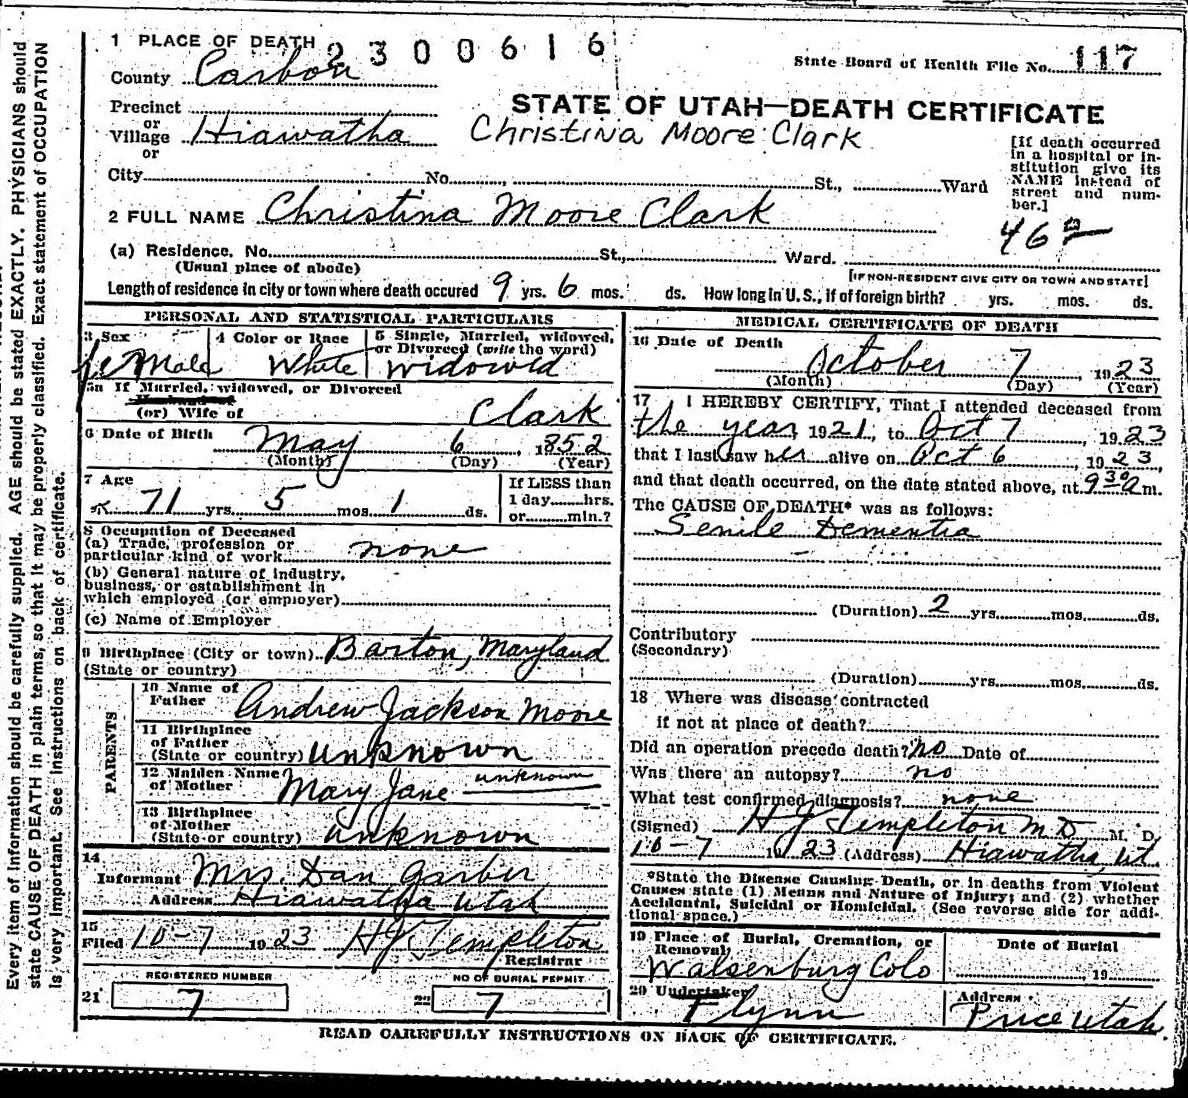 1 PLACE OF DEATH 2300616
State Board of Health File No. 117
County Carbon
STATE OF UTAH—DEATH CERTIFICATE
Precinct
or
Village Hiawatha
or
Christina Moore Clark
City No. St., Ward
[If death occurred in a hospital or institution give its NAME instead of street and number.]
2 FULL NAME Christina Moore Clark
462
(a) Residence. No. St., Ward.
(Usual place of abode) [IF NON-RESIDENT GIVE CITY OR TOWN AND STATE]
Length of residence in city or town where death occured 9 yrs. 6 mos. ds. How long in U. S., if of foreign birth? yrs. mos. ds.
PERSONAL AND STATISTICAL PARTICULARS
3 Sex 4 Color or Race 5 Single, Married, widowed, or Divorced (write the word)
feMale White widowed
5a If Married, widowed, or Divorced
(or) Wife of Clark
6 Date of Birth May 6, 1852
(Month) (Day) (Year)
7 Age
71 yrs. 5 mos. 1 ds.
If LESS than
1 day......hrs.
or........min.?
8 Occupation of Deceased
(a) Trade, profession or
particular kind of work none
(b) General nature of industry,
business, or establishment in
which employed (or employer)
(c) Name of Employer
9 Birthplace (City or town) Barton, Maryland
(State or country)
PARENTS
10 Name of
Father Andrew Jackson Moore
11 Birthplace
of Father
(State or country) unknown
12 Maiden Name
of Mother Mary Jane unknown
13 Birthplace
of Mother
(State or country) unknown
14
Informant Mrs. Dan Garber
Address Hiawatha Utah
15
Filed 10-7 1923 HJ Templeton
Registrar
REGISTERED NUMBER NO OF BURIAL PERMIT
21 7 22 7
MEDICAL CERTIFICATE OF DEATH
16 Date of Death
October 7, 1923
(Month) (Day) (Year)
17 I HEREBY CERTIFY, That I attended deceased from
the year, 1921, to Oct 7, 1923
that I last saw her alive on Oct 6, 1923
and that death occurred, on the date stated above, at 9 30 a m.
The CAUSE OF DEATH* was as follows:
Senile Dementia
(Duration) 2 yrs. mos. ds.
Contributory
(Secondary)
(Duration) yrs. mos. ds.
18 Where was disease contracted
if not at place of death?
Did an operation precede death? no Date of
Was there an autopsy? no
What test confirmed diagnosis? none
(Signed) HJ Templeton MD M. D.
10-7 1923 (Address) Hiawatha, Ut.
*State the Disease Causing Death, or in deaths from Violent
Causes state (1) Means and Nature of Injury; and (2) whether
Accidental, Suicidal or Homicidal. (See reverse side for addi-
tional space.)
19 Place of Burial, Cremation, or
Removal, Date of Burial
Walsenburg Colo , 19
20 Undertaker Address
Flynn Price Utah
READ CAREFULLY INSTRUCTIONS ON BACK OF CERTIFICATE.
Every item of information should be carefully supplied. AGE should be stated EXACTLY. PHYSICIANS should
state CAUSE OF DEATH in plain terms, so that it may be properly classified. Exact statement of OCCUPATION
is very important. See instructions on back of certificate.